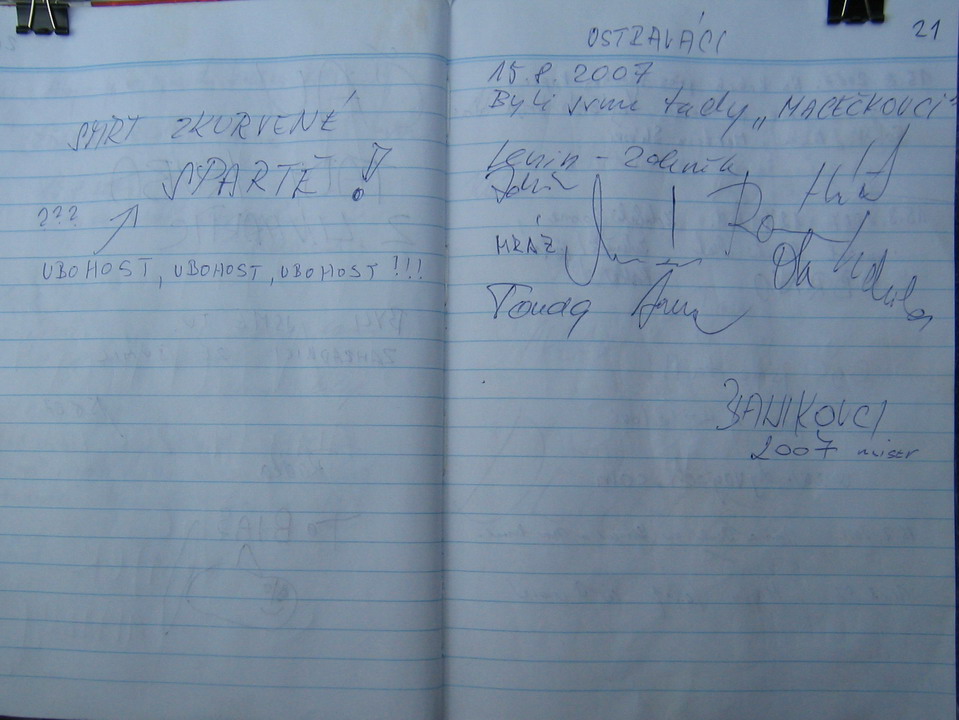 SMRT ZKURVENÉ
SPARTĚ!
???
UBOHOST, UBOHOST, UBOHOST !!!
21
OSTRAVÁCI
15.8.2007
Byli jsme tady „MACEČKOVCI"
Lenin - Zdeněk
MRÁZ
Tomáš
BANIKOVCI
2007 mistr